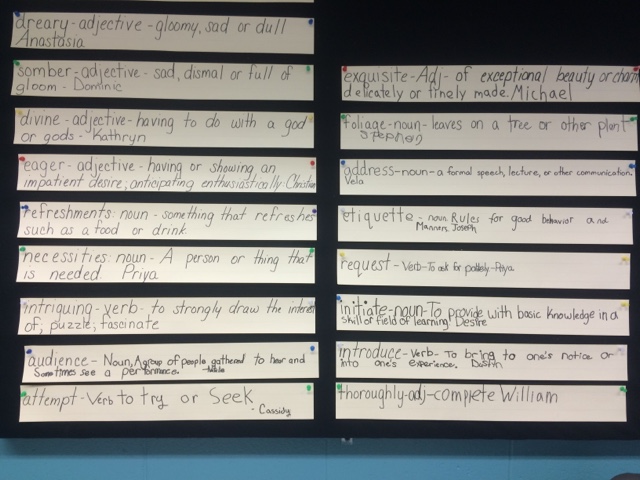 dreary-adjective-gloomy, sad or dull
Anastasia
somber-adjective-sad, dismal or full of
gloom - Dominic
divine-adjective-having to do with a god
or gods - Kathryn
eager-adjective-having or showing an
impatient desire; anticipating enthusiastically-
refreshments: noun-something that refreshes
such as a food or drink
necessities: noun-A person or thing that
is needed Priya
intriguing-verb-to strongly draw the interest
of; puzzle; fascinate
audience-Noun, A group of people gathered to hear and
Sometimes see a performance.
attempt-Verb to try or Seek
- Cassidy
exquisite-Adj-of exceptional beauty or charm
delicately or finely made. Michael
foliage-noun-leaves on a tree or other plant
Stephen
address-noun-a formal speech, lecture, or other communication.
Vela
etiquette-noun. Rules for good behavior and
Manners. Joseph
request-Verb-To ask for politely-Priya
initiate-noun-To provide with basic Knowledge in a
skill or field of learning. Desire
introduce-Verb-To bring to one's notice or
into one's experience. Dustin
thoroughly-adj-complete William